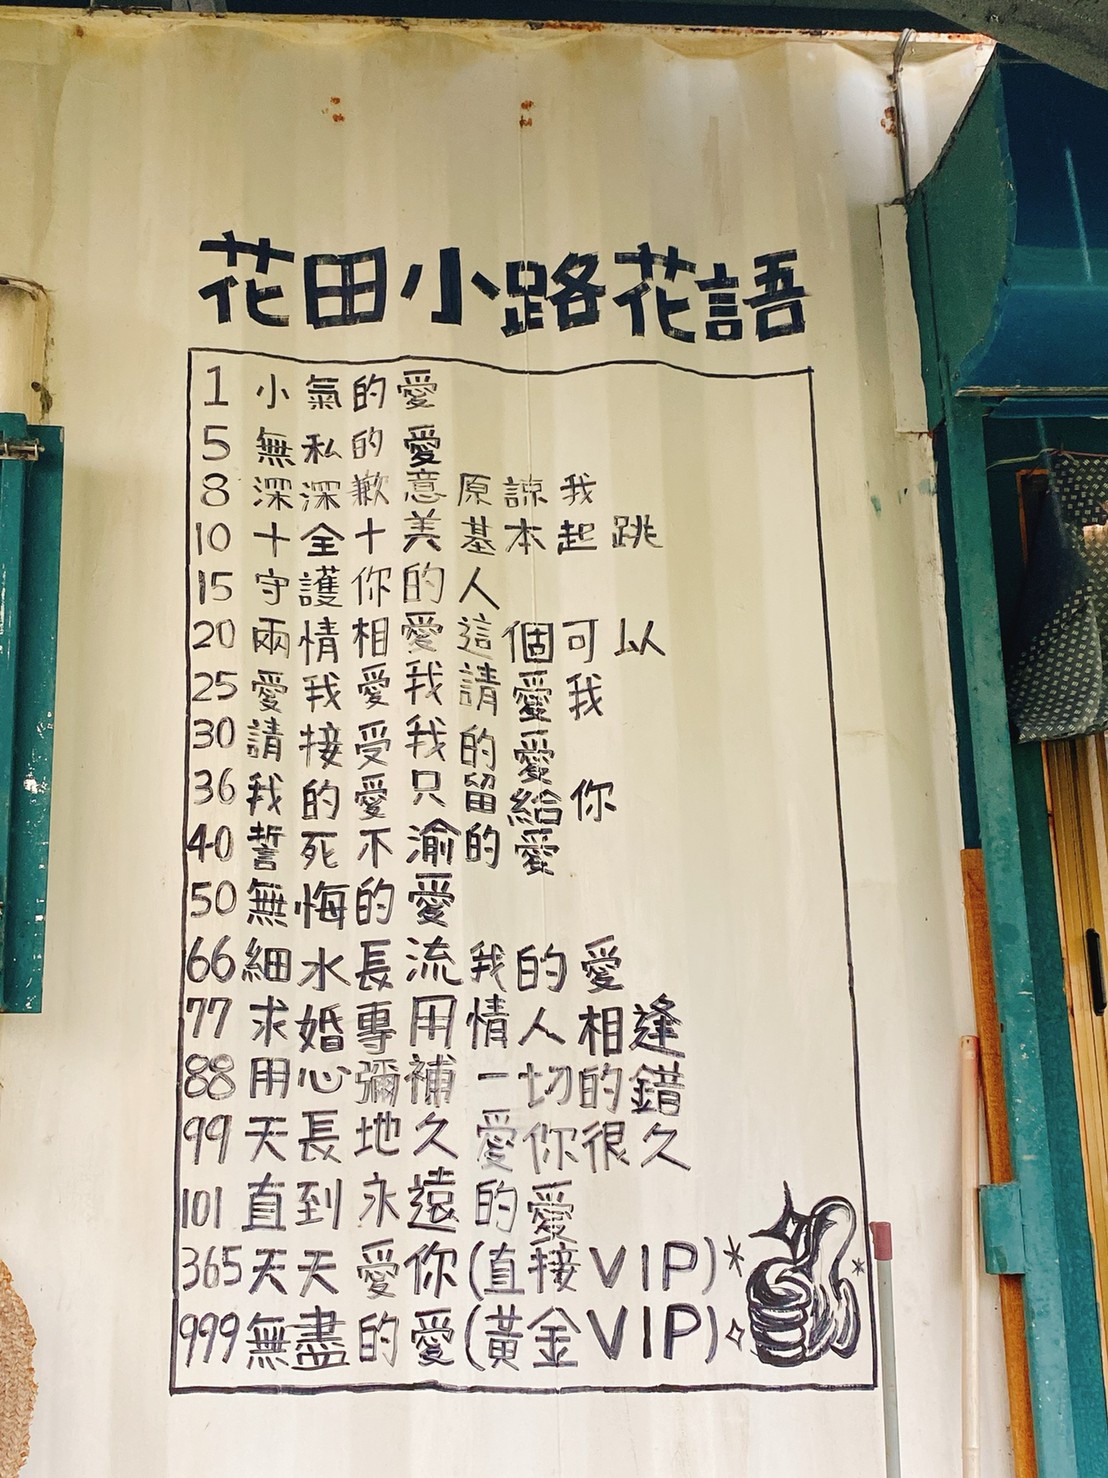 花田小路花語
1 小氣的愛
5 無私的愛
8 深深歉意原諒我
10 十全十美基本起跳
15 守護你的人
20 兩情相愛這個可以
25 愛我愛我請愛我
30 請接受我的愛
36 我的愛只留給你
40 誓死不渝的愛
50 無悔的愛
66 細水長流我的愛
77 求婚專用情人相逢
88 用心彌補一切的錯
99 天長地久愛你很久
101 直到永遠的愛
365 天天愛你(直接VIP)
999 無盡的愛(黃金VIP)